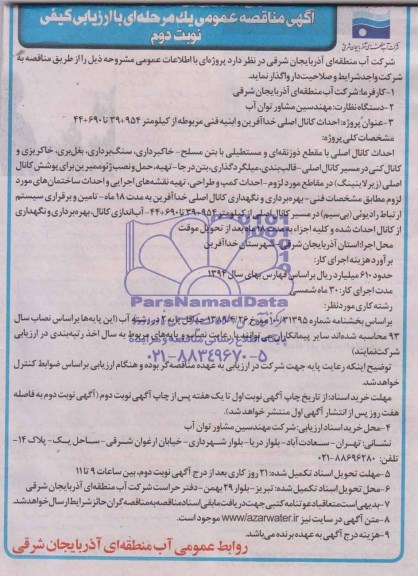 آگهی مناقصه عمومی یك مرحله‌ای با ارزیابی کیفی
نوبت دوم
شرکت آب منطقه‌ای آذربایجان شرقی
شرکت آب منطقه‌ای آذربایجان شرقی در نظر دارد پروژه‌ای با اطلاعات عمومی مشروحه ذیل را از طریق مناقصه به
شرکت واجد شرایط و صلاحیت‌دار واگذار نماید.
۱-کارفرما: شرکت آب منطقه‌ای آذربایجان شرقی
۲-دستگاه نظارت: مهندسین مشاور توان آب
۳-عنوان پروژه: احداث کانال اصلی خداآفرین و ابنیه فنی مربوطه از کیلومتر ۹۵۴+۳۹ تا ۶۹۰+۴۴
مشخصات کلی پروژه:
احداث کانال اصلی با مقطع ذوزنقه‌ای و مستطیلی با بتن مسلح- خاکبرداری، سنگ‌برداری، بغل‌بری، خاکریزی و
کانال کنی در مسیر کانال اصلی -قالب‌بندی، میلگردگذاری، بتن درجا- تهیه، حمل و نصب ژئوممبرین برای پوشش کانال
اصلی (زیر لاینینگ) در مقاطع مورد لزوم- احداث کمپ و طراحی، تهیه نقشه‌های اجرایی و احداث ساختمان‌های مورد
لزوم مطابق مشخصات فنی- بهره‌برداری و نگهداری کانال اصلی خداآفرین به مدت ۱۸ ماه- تامین و برقراری سیستم
ارتباط رادیوئی (بی‌سیم) در مسیر کانال اصلی از کیلومتر ۹۵۴+۳۹ تا ۶۹۰+۴۴- آب‌اندازی کانال، بهره‌برداری و نگهداری
از کانال احداث شده و کلیه اجزاء به مدت ۱۸ ماه بعد از تحویل موقت
محل اجرا: استان آذربایجان شرقی- شهرستان خداآفرین
برآورد هزینه اجرای کار:
حدود ۶۱۰ میلیارد ریال براساس فهارس بهای سال ۱۳۹۴
مدت اجرای کار: ۳۰ ماه شمسی
رشته کاری موردنظر:
براساس بخشنامه شماره ۱۰/۳۱۳۹۵ مورخ ۱۳۸۹/۴/۲۶ حداقل پایه ۲ در رشته آب (این پایه‌ها براساس نصاب سال
۹۳ محاسبه شده‌اند سایر پیمانکاران می‌توانند با رعایت نصاب و پایه‌های مربوط به سال اخذ رتبه‌بندی در ارزیابی
شرکت نمایند)
توضیح اینکه رعایت پایه جهت شرکت در ارزیابی به عهده مناقصه‌گر بوده و هنگام ارزیابی براساس ضوابط کنترل
خواهد شد.
مهلت خرید اسناد: از تاریخ چاپ آگهی نوبت اول تا یک هفته پس از چاپ آگهی نوبت دوم (آگهی نوبت دوم به فاصله
هفت روز پس از انتشار آگهی اول منتشر خواهد شد).
۴-محل خرید اسناد ارزیابی: شرکت مهندسین مشاور توان آب
نشانی: تهران- سعادت آباد- بلوار دریا- بلوار شهرداری- خیابان ارغوان شرقی- ساحل یک- پلاک ۱۴-
تلفن: ۸۸۶۹۶۲۸۰-۰۲۱
۵-مهلت تحویل اسناد تکمیل شده: ۲۱ روز کاری بعد از درج آگهی نوبت دوم، بین ساعات ۹ تا ۱۱
۶-محل تحویل اسناد تکمیل شده: تبریز- بلوار ۲۹ بهمن- دفتر حراست شرکت آب منطقه‌ای آذربایجان شرقی
۷-بدیهی است متعاقبا دعوتنامه کتبی جهت دریافت مابقی اسناد مناقصه به مناقصه‌گران حائز شرایط ارسال خواهد شد.
۸-متن آگهی در سایت نیز www.azarwater.ir موجود است.
۹-هزینه درج آگهی به عهده برنده می‌باشد.
روابط عمومی آب منطقه‌ای آذربایجان شرقی
ParsNamadData
۰۲۱-۸۸۳۴۹۶۷۰-۵